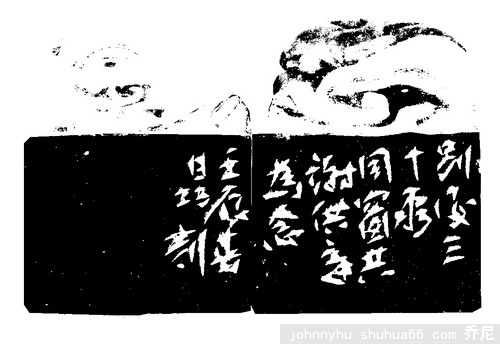 别後三
十
同窗共
謝供
為念
壬辰春
日培刻
johnnyhu.shuhua66.com 乔尼